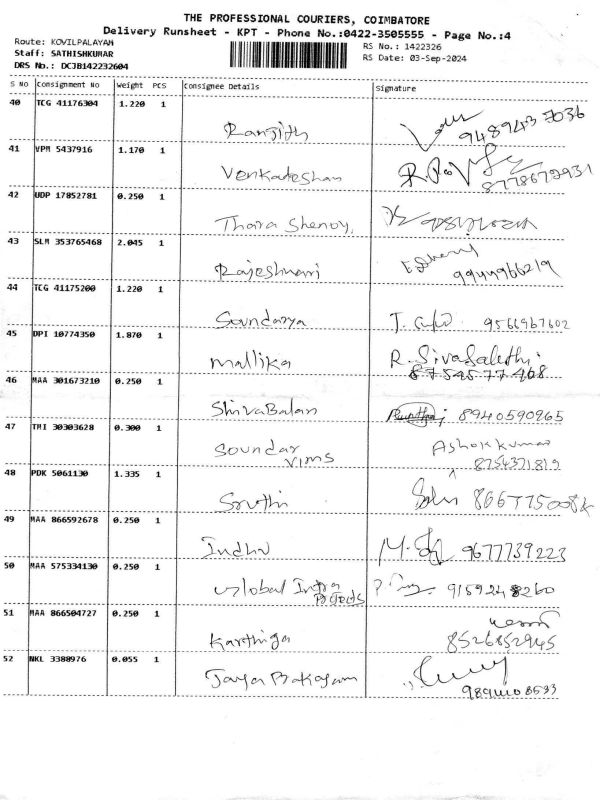 THE PROFESSIONAL COURIERS, COIMBATORE
Delivery Runsheet - KPT - Phone No.:0422-3505555 - Page No.:4
Route: KOVILPALAYAM
Staff: SATHISHKUMAR
DRS No.: DCJB142232604
RS No.: 1422326
RS Date: 03-Sep-2024
S NO Consignment No Weight PCS Consignee Details Signature
40 TCG 41176304 1.220 1 Ranjith 9489437036
41 VPM 5437916 1.170 1 Venkadeshan 8778672931
42 UDP 17852781 0.250 1 Thara Shenoy,
43 SLM 353765468 2.045 1 Rajeshwari 9944966219
44 TCG 41175200 1.220 1 Soundarya 9566967602
45 DPI 10774350 1.870 1 Mallika R. Sivasalethi
87545 77 468
46 MAA 301673210 0.250 1 Shiva Balan 8940590965
47 TMI 30303628 0.300 1 Soundar Ashok kumar
vims 8754371819
48 PDK 5061130 1.335 1 Sruthi
49 MAA 866592678 0.250 1 Indhu 9677739223
50 MAA 575334130 0.250 1 Global Infra 9159248260
51 MAA 866504727 0.250 1 Karthiga 8526852945
52 NKL 3388976 0.055 1 Jaya Prakasam